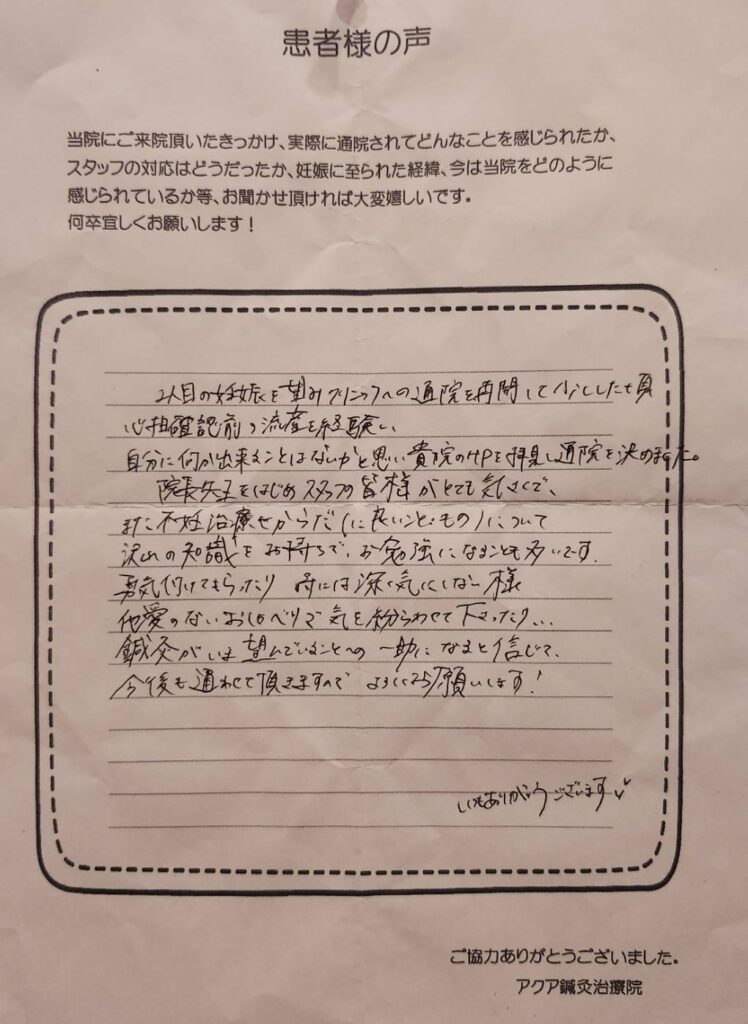 患者様の声
当院にご来院頂いたきっかけ、実際に通院されてどんなことを感じられたか、
スタッフの対応はどうだったか、妊娠に至られた経緯、今は当院をどのように
感じられているか等、お聞かせ頂ければ大変嬉しいです。
何卒宜しくお願いします！
2人目の妊娠を望みクリニックへの通院を再開して少しした頃
心拍確認前の流産を経験し
自分に何か出来ることはないかと思い貴院のHPを拝見し通院を決めました。
院長先生をはじめスタッフの皆様がとても気さくで、
また不妊治療やからだ(に良いこと・もの)について
沢山の知識をお持ちで、お勉強になることも多いです。
勇気付けてもらったり 時には深く気にしない様
他愛のないおしゃべりで気を紛らわせて下さったり...
鍼灸がいま望んでいることへの一助になると信じて、
今後も通わせて頂きますので よろしくお願いします！
いつもありがとうございます♡
ご協力ありがとうございました。
アクア鍼灸治療院